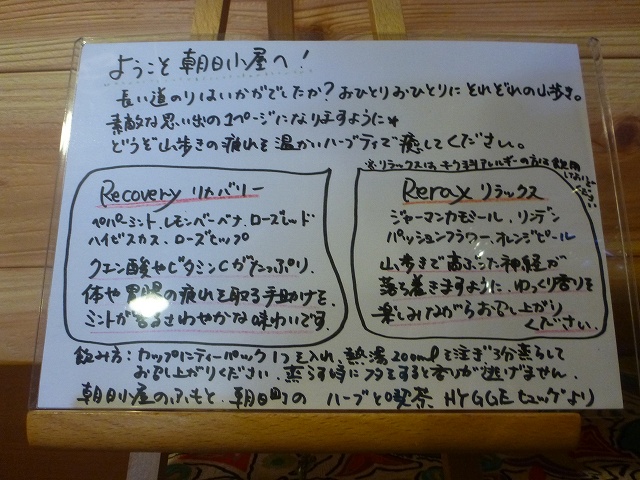 ようこそ 朝日小屋へ!
長い道のりはいかがでしたか? おひとりおひとりに それぞれの山歩き。
素敵な思い出の1ページになりますように☆
どうぞ山歩きの疲れを温かいハーブティで癒してください。
※リラックスは、キク科アレルギーの方は飲用
Recovery リカバリー
ペパーミント、レモンバーベナ、ローズレッド
ハイビスカス、ローズヒップ
クエン酸やビタミンCがたっぷり、
体や胃腸の疲れを取る手助けを。
ミントが香るさわやかな味わいです。
Rerax リラックス
ジャーマンカモミール、リンデン
パッションフラワー、オレンジピール
山歩きで高ぶった神経が
落ち着きますように、ゆっくり香りを
楽しみながらお召し上がり
ください。
飲み方:カップにティーパック1つを入れ、熱湯200mlを注ぎ3分蒸らして
お召し上がりください。蒸らす時にフタをすると香りが逃げません。
朝日小屋のふもと、朝日町の ハーブと喫茶 HYGGE ヒュッゲより